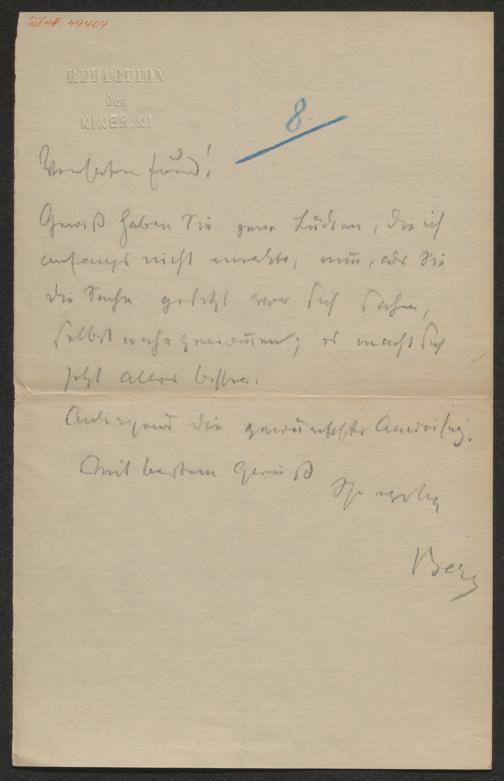 I.N. 49404
REDACTION
des
KIKERIKI
8.
Verehrter Freund!
Gewiß haben Sie jene Lücken, die ich
anfangs nicht merkte, nun, als Sie
die Sache gesetzt vor sich sahen,
selbst wahrgenommen; es macht sich
jetzt alles besser.
die gewünschte Anweisung.
Mit bestem Gruß
Ihr
Berg